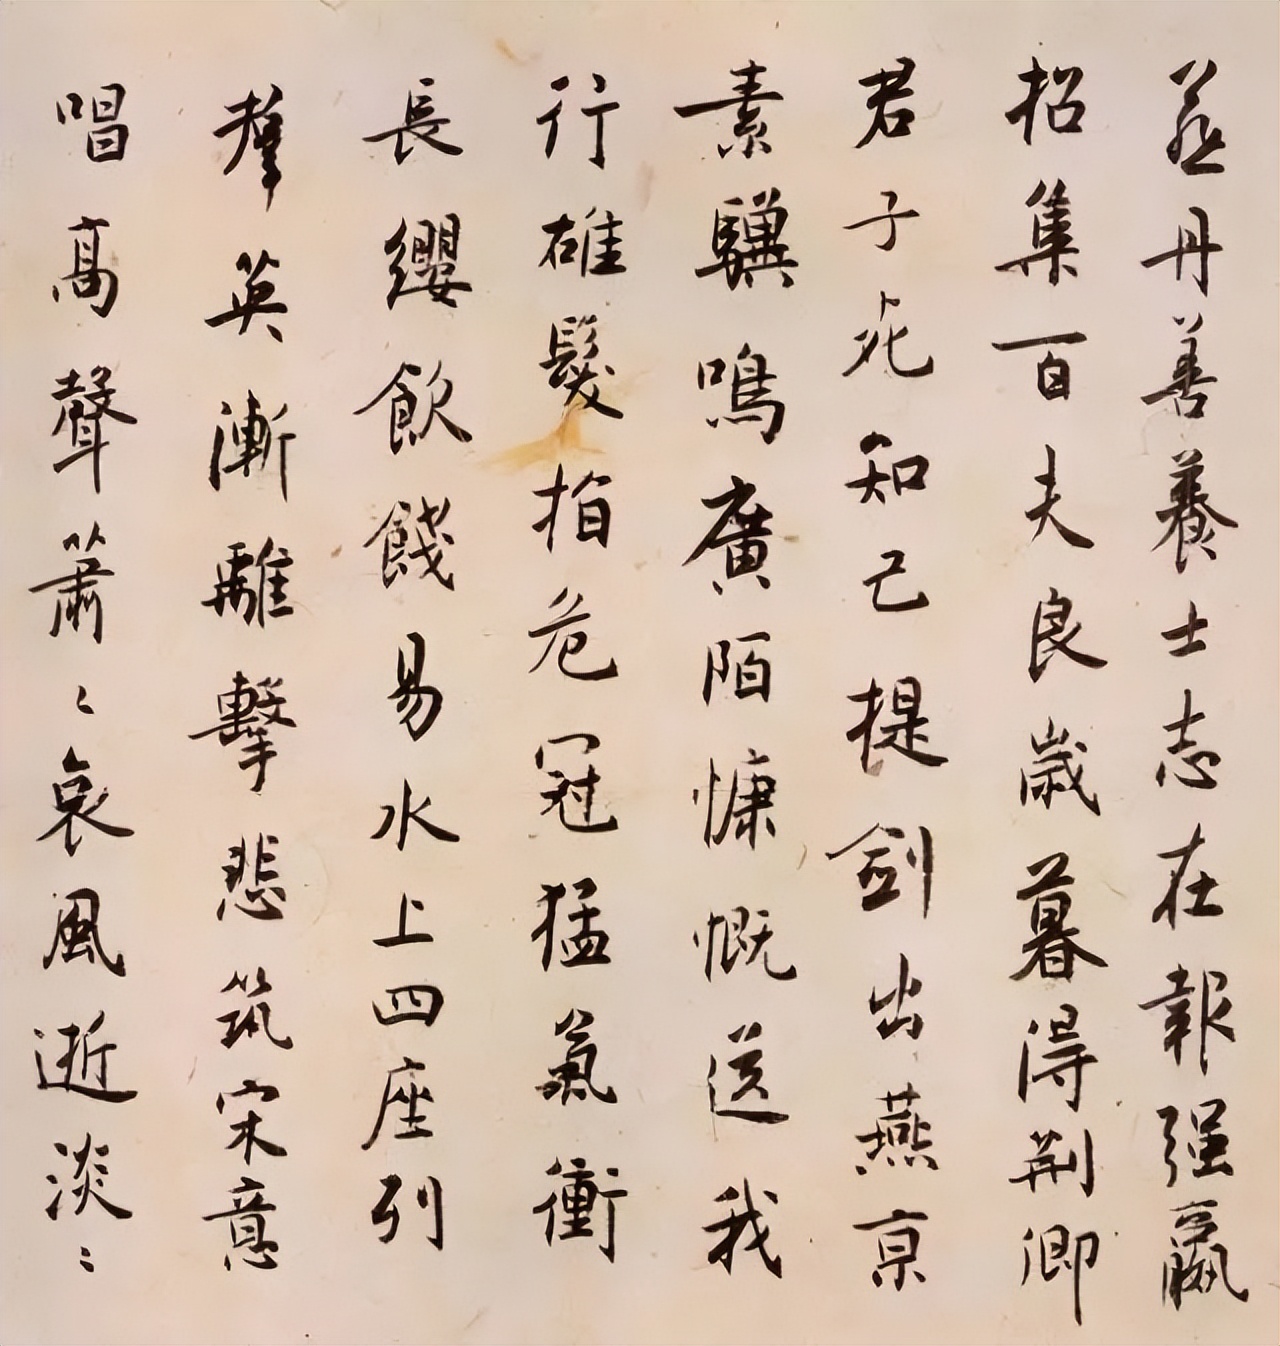 燕丹善養士志在報强嬴
招集百夫良歳暮得荆卿
君子死知己提劍出燕京
素驥鳴廣陌慷慨送我
行雄髮指危冠猛氣衝
長纓飲餞易水上四座列
羣英漸離擊悲筑宋意
唱髙聲蕭〻哀風逝淡〻